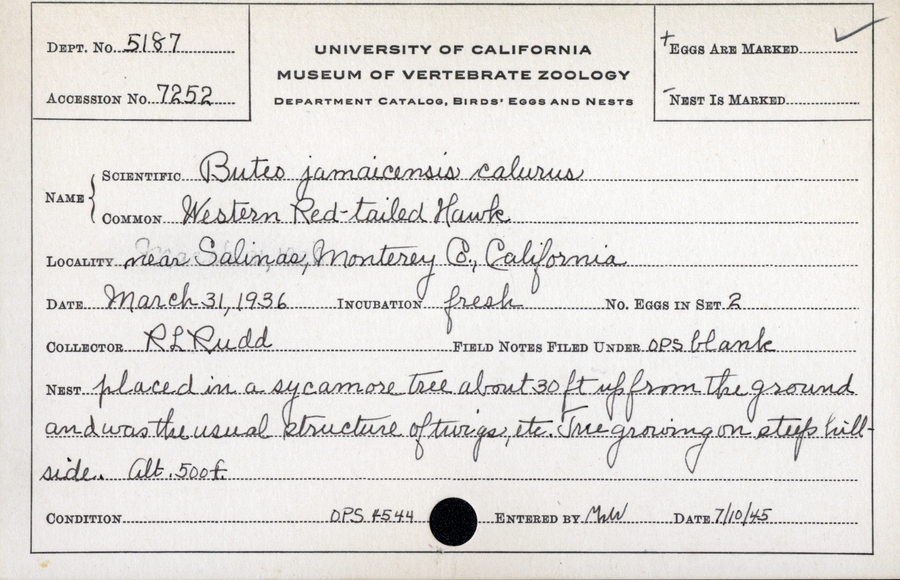 DEPT. NO. 5187
ACCESSION NO. 7252
UNIVERSITY OF CALIFORNIA
MUSEUM OF VERTEBRATE ZOOLOGY
DEPARTMENT CATALOG, BIRDS' EGGS AND NESTS
+ EGGS ARE MARKED ✓
- NEST IS MARKED
NAME { SCIENTIFIC Buteo jamaicensis calurus
COMMON Western Red-tailed Hawk
LOCALITY near Salinas, Monterey Co., California
DATE March 31, 1936 INCUBATION fresh NO. EGGS IN SET 2
COLLECTOR RLRudd FIELD NOTES FILED UNDER OPS blank
NEST placed in a sycamore tree about 30 ft up from the ground
and was the usual structure of twigs, etc. Tree growing on steep hill-
side. Alt. 500 ft.
CONDITION OPS 4544 ENTERED BY MWW DATE 7/10/45